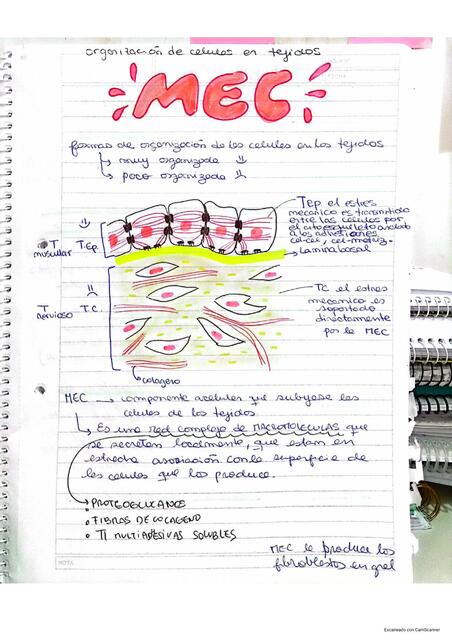 organización de celulas en tejidos
MEC
formas de organización de las celulas en los tejidos
↳ muy organizado
↳ poco organizado
T.Ep el estres
mecanico es transmitido
entre las celulas por
el citoesqueleto anclado
a las adhesiones
cel-cel, cel-matriz.
Lamina basal
T muscular
T.Ep.
T nervioso
T.C.
TC el estres
mecanico es
soportado
directamente
por la MEC
colageno
MEC → componente acelular que subyace las
celulas de los tejidos
↳ Es una red complejo de MACROMOLECULAS que
se secretan localmente, que estan en
estrecha asociación con la superficie de
las celulas que las produce.
• PROTEOGLUCANOS
• FIBRAS DE COLAGENO
• MULTIADESIVAS SOLUBLES
MEC la produce los
fibroblastos en gral
NOTA
Escaneado con CamScanner